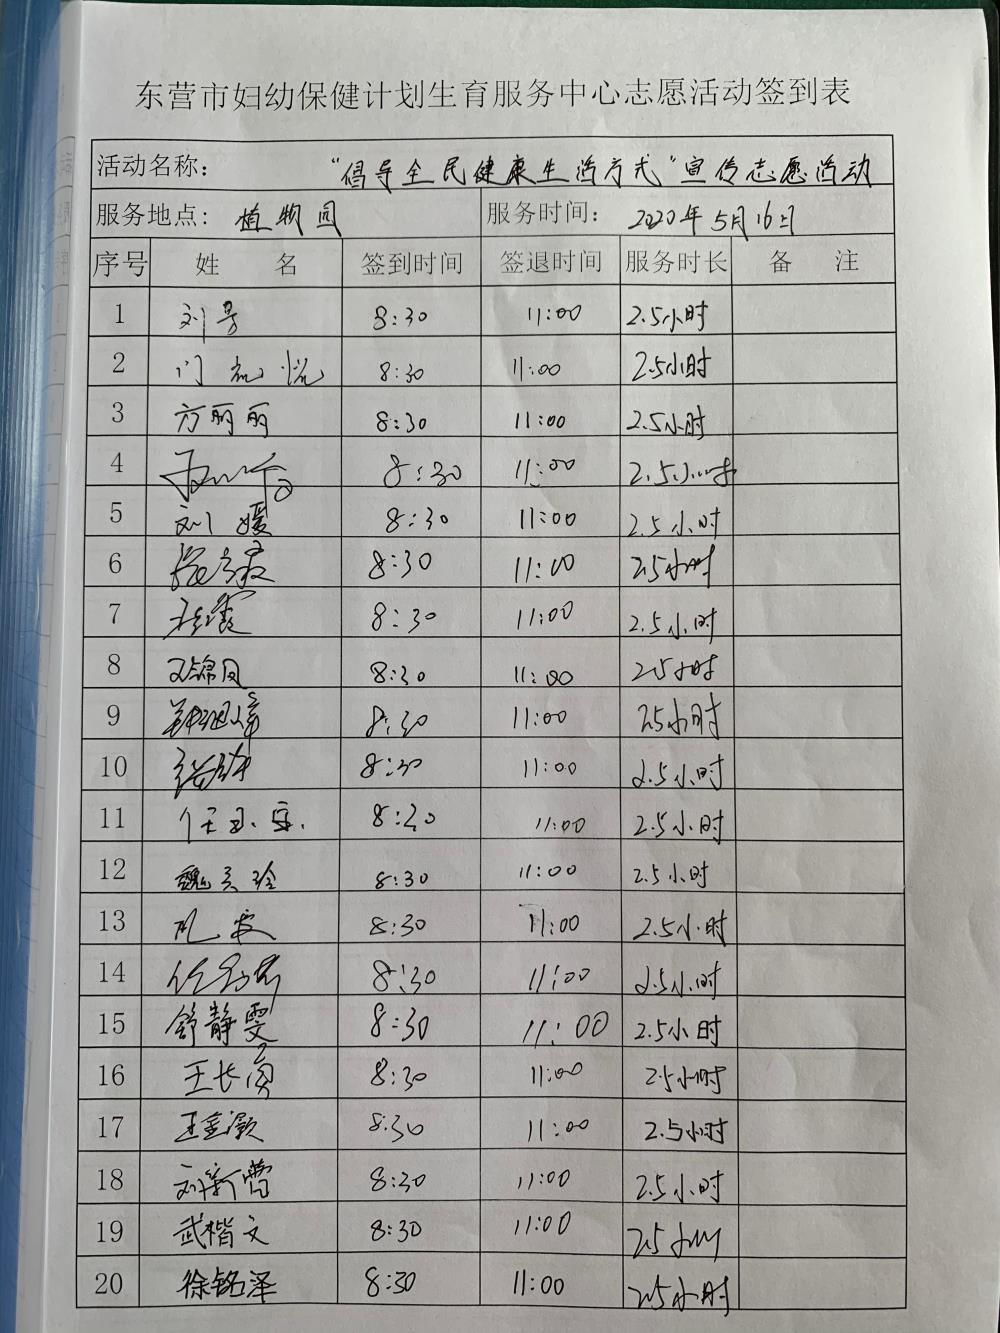 东营市妇幼保健计划生育服务中心志愿活动签到表
活动名称： “倡导全民健康生活方式”宣传志愿活动
服务地点： 植物园 服务时间： 2020年5月16日
序号 姓 名 签到时间 签退时间 服务时长 备 注
1 刘芳 8:30 11:00 2.5小时
2 8:30 11:00 2.5小时
3 方丽丽 8:30 11:00 2.5小时
4 8:30 11:00 2.5小时
5 刘媛 8:30 11:00 2.5小时
6 8:30 11:00 2.5小时
7 8:30 11:00 2.5小时
8 8:30 11:00 2.5小时
9 8:30 11:00 2.5小时
10 8:30 11:00 2.5小时
11 8:30 11:00 2.5小时
12 8:30 11:00 2.5小时
13 8:30 11:00 2.5小时
14 8:30 11:00 2.5小时
15 舒静雯 8:30 11:00 2.5小时
16 8:30 11:00 2.5小时
17 王金灏 8:30 11:00 2.5小时
18 8:30 11:00 2.5小时
19 武楷文 8:30 11:00 2.5小时
20 徐铭泽 8:30 11:00 2.5小时